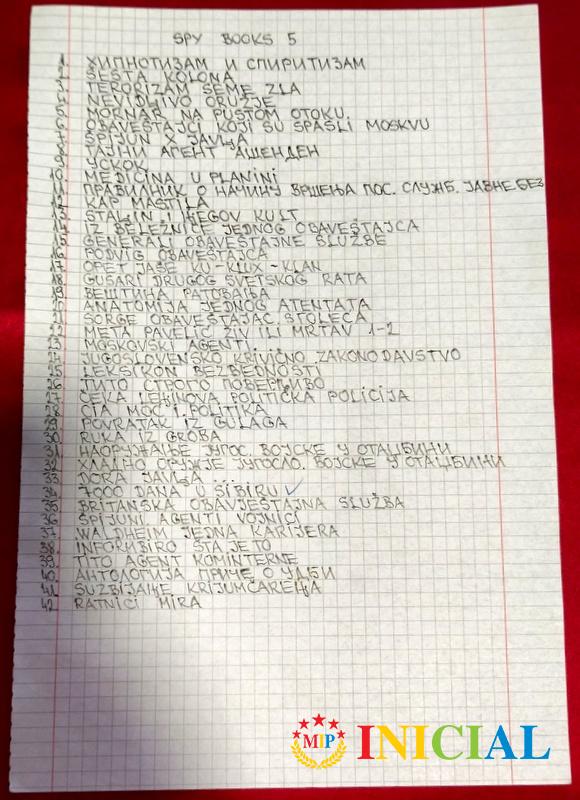 SPY BOOKS 5
1. ХИПНОТИЗАМ И СПИРИТИЗАМ
2. ŠESTA KOLONA
3. TERORIZAM SEME ZLA
4. NEVIDLJIVO ORUŽJE
5. MORNAR NA PUSTOM OTOKU
6. OBAVEŠTAJCI KOJI SU SPASLI MOSKVU
7. ŠPIJUN X JAVLJA
8. ТАЈНИ АГЕНТ АШЕНДЕН
9. USKOK
10. MEDICINA U PLANINI
11. ПРАВИЛНИК О НАЧИНУ ВРШЕЊА ПОС. СЛУЖБ. ЈАВНЕ БЕЗ
12. KAP MASTILA
13. STALJIN I NJEGOV KULT
14. IZ BELEŽNICE JEDNOG OBAVEŠTAJCA
15. GENERALI OBAVEŠTAJNE SLUŽBE
16. PODVIG OBAVEŠTAJCA
17. OPET JAŠE KU-KLUX-KLAN
18. GUSARI DRUGOG SVETSKOG RATA
19. ВЕШТИНА РАТОВАЊА
20. ANATOMIJA JEDNOG ATENTATA
21. SORGE OBAVEŠTAJAC STOLEĆA
22. META PAVELIĆ ŽIV ILI MRTAV 1-2
23. MOSKOVSKI AGENTI
24. JUGOSLOVENSKO KRIVIČNO ZAKONODAVSTVO
25. LEKSIKON BEZBEDNOSTI
26. ТИТО СТРОГО ПОВЕРЉИВО
27. ČEKA LENJINOVA POLITIČKA POLICIJA
28. CIA MOĆ I POLITIKA
29. POVRATAK IZ GULAGA
30. RUKA IZ GROBA
31. НАОРУЖАЊЕ ЈУГОС. ВОЈСКЕ У ОТАЏБИНИ
32. ХЛАДНО ОРУЖЈЕ ЈУГОСЛО. ВОЈСКЕ У ОТАЏБИНИ
33. DORA JAVLJA ...
34. 7000 DANA U SIBIRU ✓
35. BRITANSKA OBAVJEŠTAJNA SLUŽBA
36. ŠPIJUNI AGENTI VOJNICI
37. WALDHEIM JEDNA KARIJERA
38. INFORMBIRO ŠTA JE TO
39. TITO AGENT KOMINTERNE
40. АНТОЛОГИЈА ПРИЧЕ О УДБИ
41. SUZBIJANJE KRIJUMČARENJA
42. RATNICI MIRA
MIP INICIAL